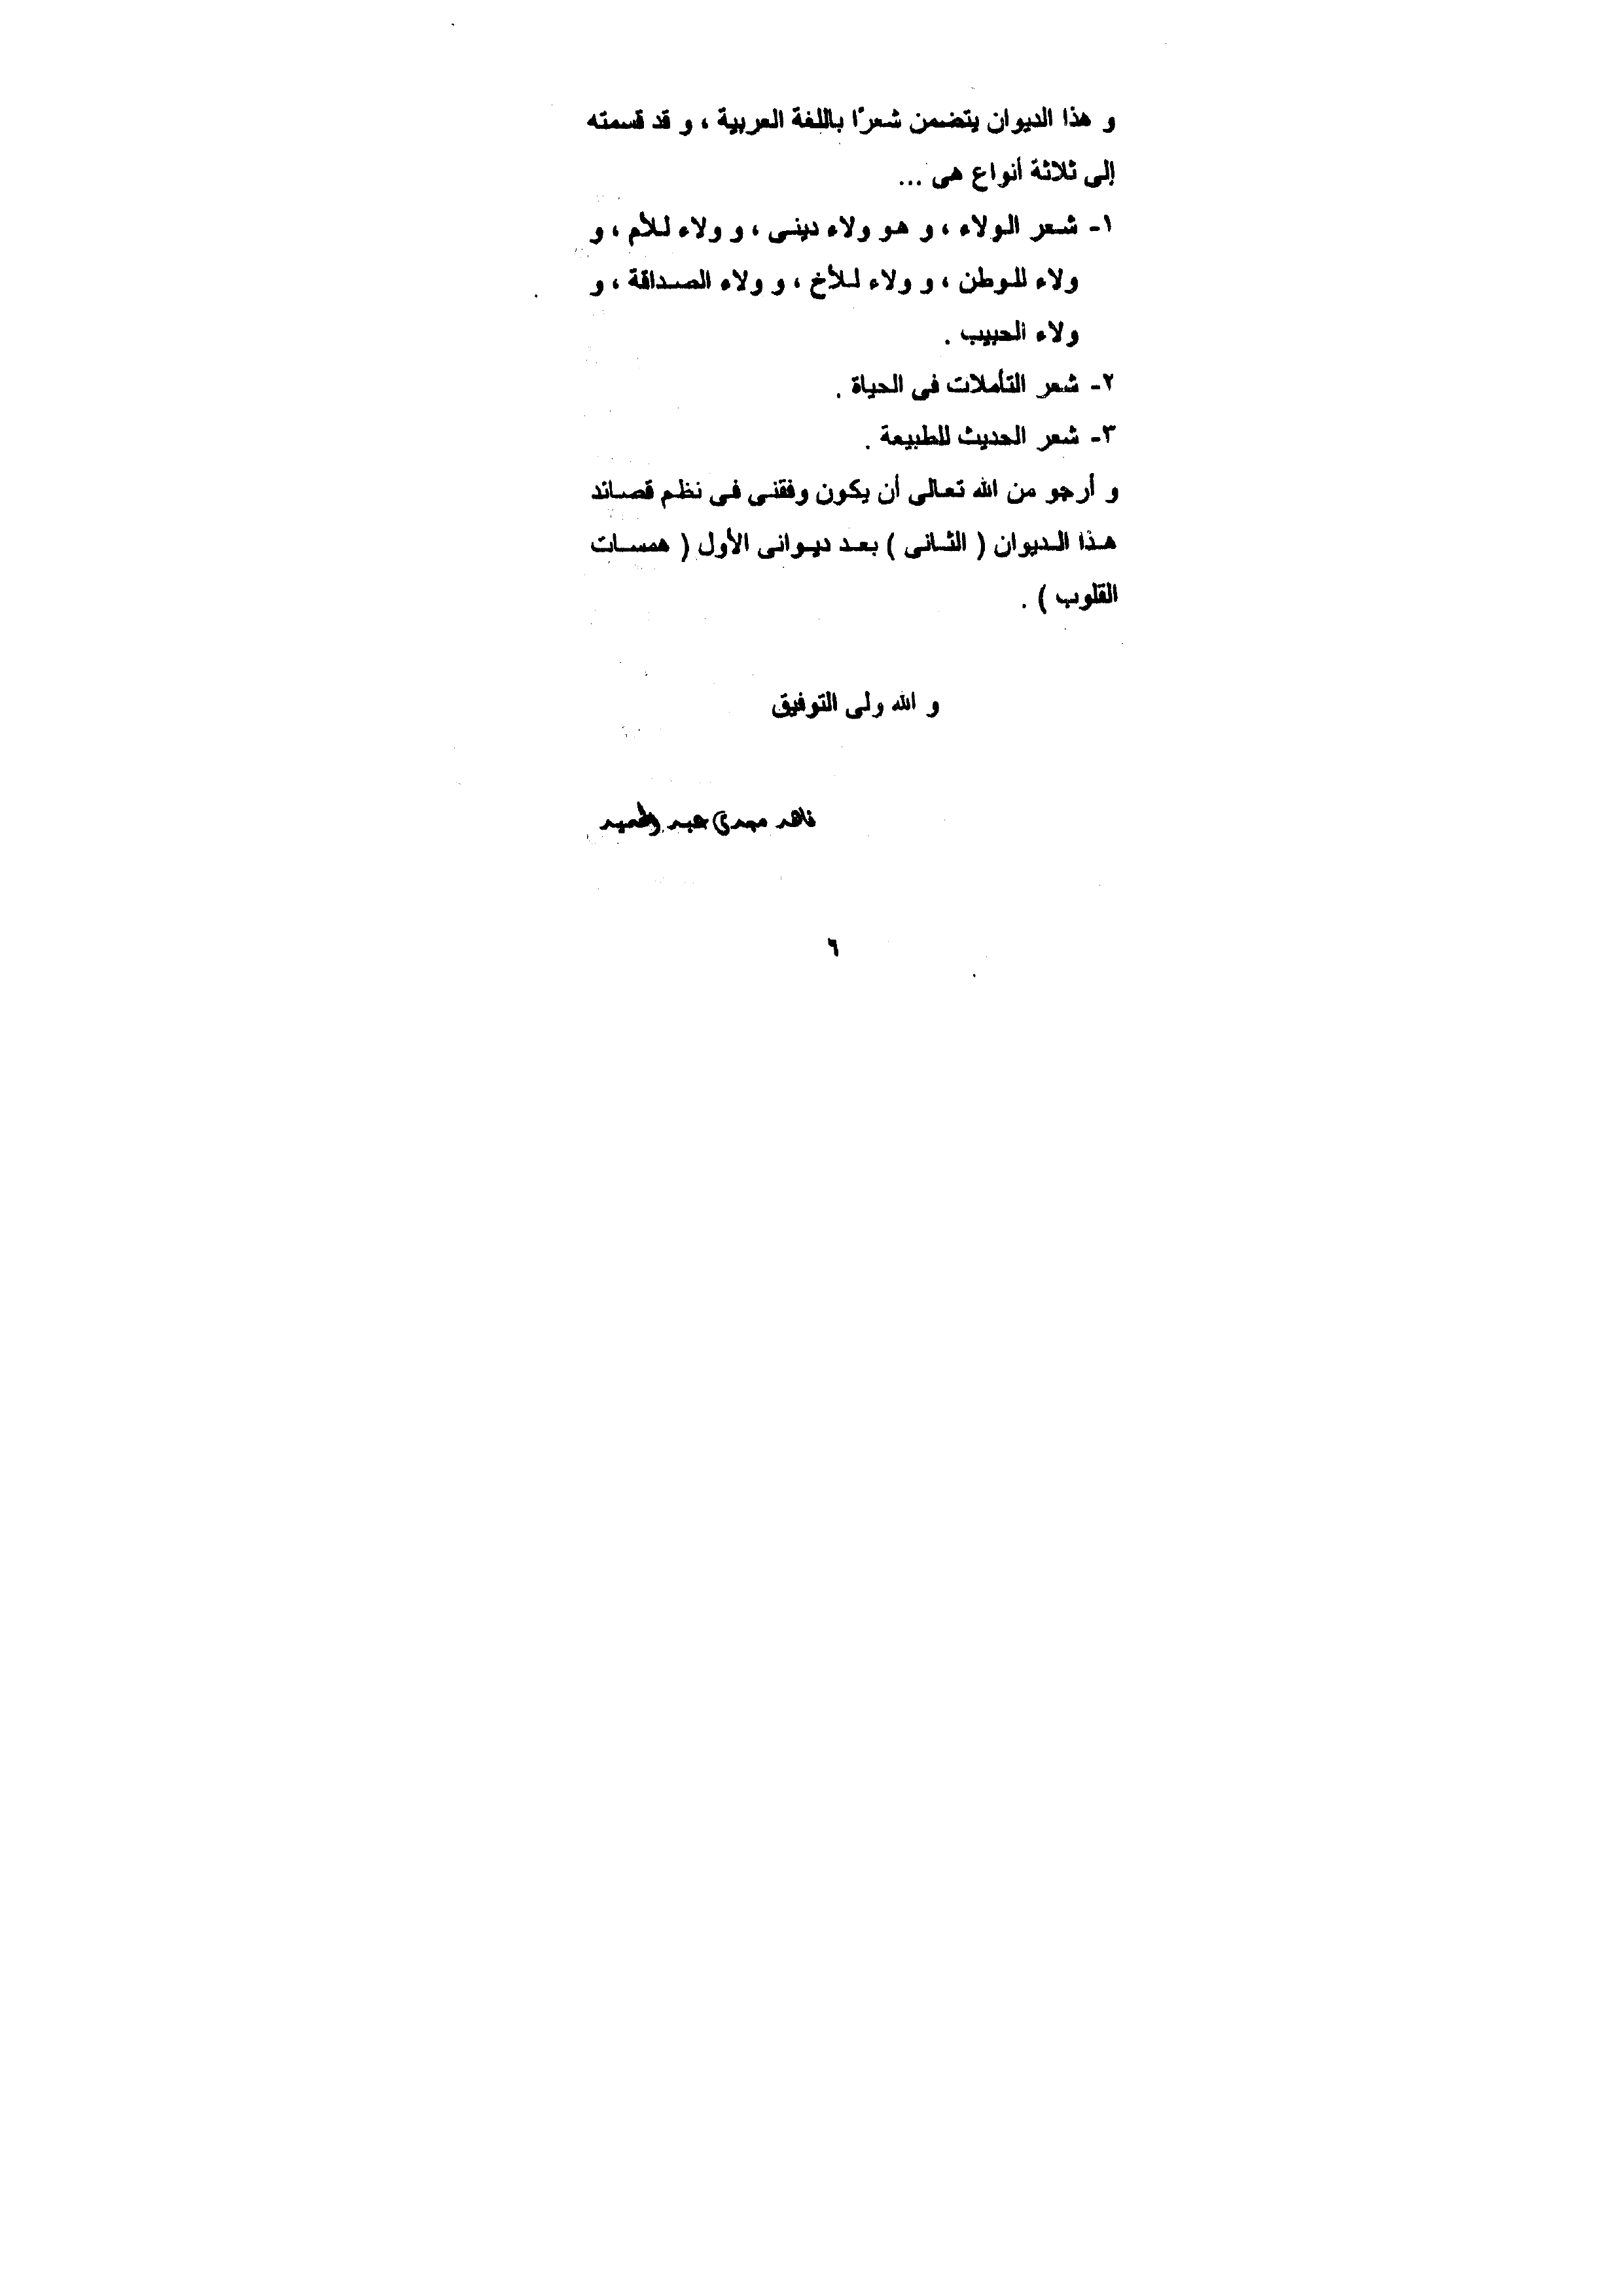 و هذا الديوان يتضمن شعرًا باللغة العربية ، و قد قسمته
إلى ثلاثة أنواع هى ...
١- شعر الولاء ، و هو ولاء دينى ، و ولاء للأم ، و
ولاء للوطن ، و ولاء للأخ ، و ولاء الصداقة ، و
ولاء الحبيب .
٢- شعر التأملات فى الحياة .
٣- شعر الحديث للطبيعة .
و أرجو من الله تعالى أن يكون وفقنى فى نظم قصائد
هذا الديوان ( الثانى ) بعد ديوانى الأول ( همسات
القلوب ) .
و الله ولى التوفيق
ناهد مجدى عبد الحميد
٦